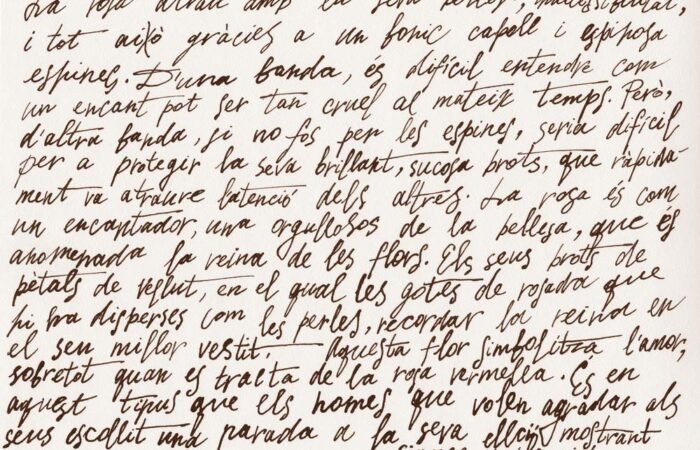 La rosa atrau amb la seva
i tot això gràcies a un bonic capell i espinosa
espines. D'una banda, és difícil entendre com
un encant pot ser tan cruel al mateix temps. Però,
d'altra banda, si no fos per les espines, seria difícil
per a protegir la seva brillant, sucosa brots, que ràpida-
ment va atraure l'atenció dels altres. La rosa és com
un encantador, una orgullosos de la bellesa, que és
anomenada la reina de les flors. Els seus brots de
pètals de vellut, en el qual les gotes de rosada que
hi ha disperses com les perles, recordar la reina en
el seu millor vestit. Aquesta flor simbolitza l'amor,
sobretot quan es tracta de la rosa vermella. És en
aquest tipus que els homes que volen agradar als
seus escollit una parada a la seva mostrant